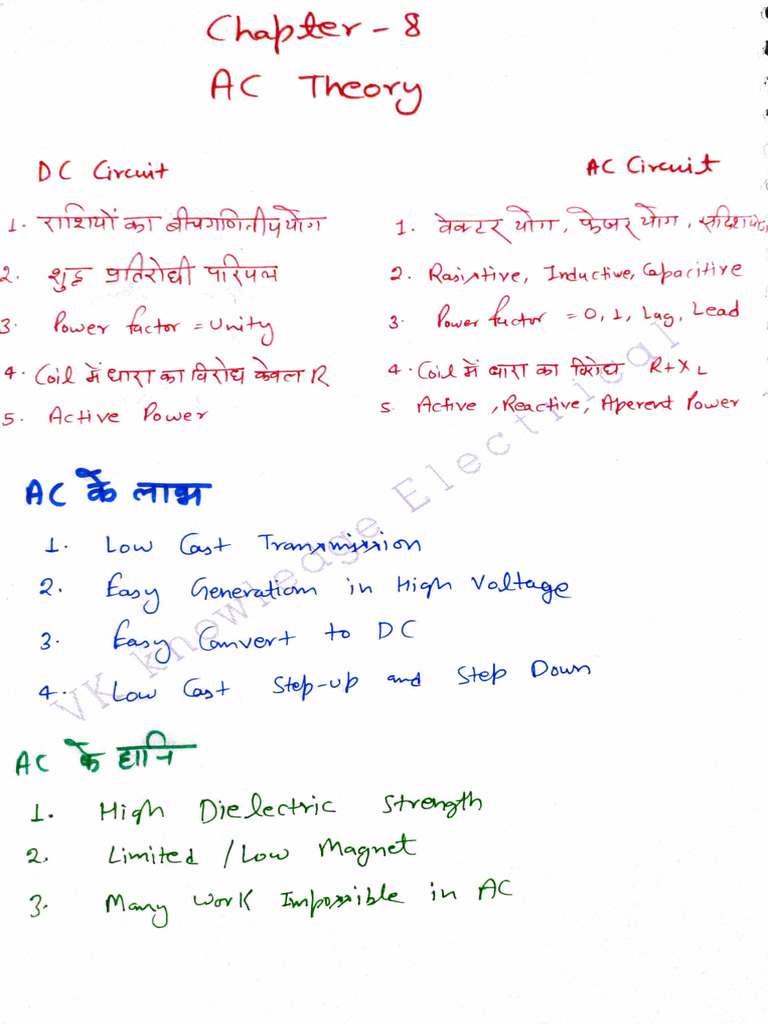 Chapter - 8
AC Theory
DC Circuit
1. राशियों का बीजगणितीय योग
2. शुद्ध प्रतिरोधी परिपथ
3. Power factor = Unity
4. Coil में धारा का विरोध केवल R
5. Active Power
AC Circuit
1. वेक्टर योग, फेजर योग,
2. Rasistive, Inductive, Capacitive
3. Power factor = 0, 1, Lag, Lead
4. Coil में धारा का विरोध R+XL
5. Active, Reactive, Aperent Power
AC के लाभ
1. Low Cast Transmission
2. Easy Generation in High Voltage
3. Easy Convert to DC
4. Low Cast Step-up and Step Down
AC के हानि
1. High Dielectric Strength
2. Limited / Low Magnet
3. Many Work Impossible in AC
VK knowledge Electrical